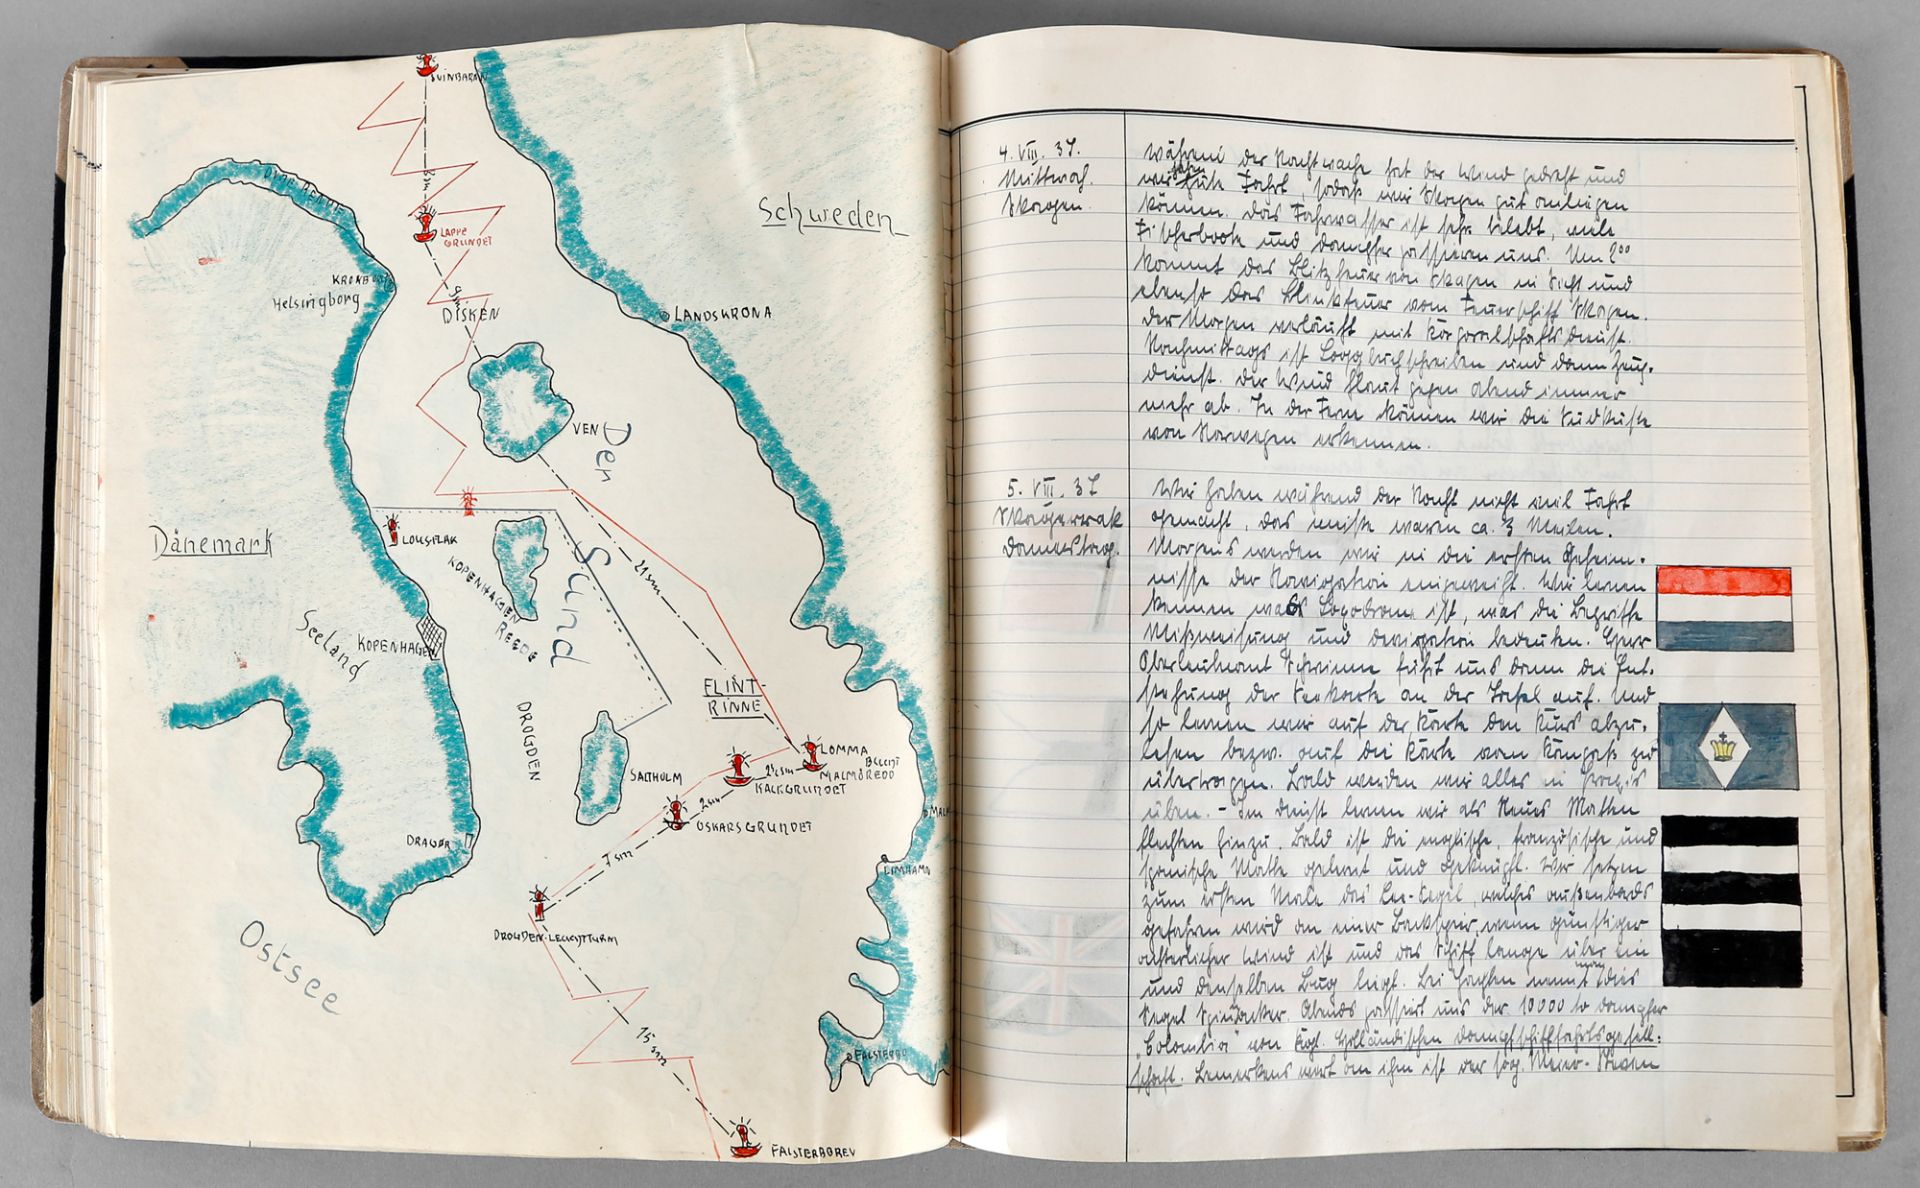 SVINBÅDAN
Schweden
DYBE RENDE
LAPPE
GRUNDET
KRONBORG
Helsingborg
9 sm
DISKEN
LANDSKRONA
VEN
Den
Sund
LOUSFLAK
Dänemark
KOPENHAGEN
REEDE
21 sm
Seeland
KOPENHAGEN
FLINT-
RINNE
DROGDEN
LOMMA
MALMÖREDD
2½ sm
KALKGRUNDET
SALTHOLM
2 sm
OSKARSGRUNDET
DRAGØR
LIMHAMN
7 sm
DROGDEN-LEUCHTTURM
Ostsee
15 sm
FALSTERBO
FALSTERBOREV
4. VIII. 37.
Mittwoch.
Skagen.
Während der Nachtwache hat der Wind gedreht und
wir haben gute Fahrt, sodaß wir Skagen gut anliegen
können. Das Fahrwasser ist sehr belebt, viele
Fischerboote und Dampfer passieren uns. Um 2⁰⁰
kommt das Blitzfeuer von Skagen in Sicht und
ebenso das Blinkfeuer vom Feuerschiff Skagen.
Der Morgen verläuft mit Korporalschaftsdienst.
Nachmittags ist Loggbuchschreiben und dann Zeug-
dienst. Der Wind flaut gegen Abend immer
mehr ab. In der Ferne können wir die Südküste
von Norwegen erkennen.
5. VIII. 37
Skagerrak
Donnerstag.
Wir haben während der Nacht nicht viel Fahrt
gemacht, das meiste waren ca. 3 Meilen.
Morgens werden wir in die ersten Geheim-
nisse der Navigation eingeweiht. Wir lernen
kennen was Loxodrome ist, was die Begriffe
Mißweisung und Deviation bedeuten. Herr
Oberleutnant führt uns dann die Ent-
stehung der Seekarte an der Tafel auf. Und
so lernen wir auf der Karte den Kurs abzu-
lesen bezw. auf die Karte vom Kompaß zu
übertragen. Bald werden wir alles in Praxis
üben. - Im Dienst lernen wir als Neues Matten
flechten hinzu. Bald ist die englische, französische und
spanische Matte gelernt und geknüpft. Wir setzen
zum ersten Male das Lee-Segel, welches außenbords
gefahren wird an einer Backspier, wenn günstiger
achterlicher Wind ist und das Schiff lange über ein
und denselben Bug liegt. Bei Yachten nennt man dies
Segel Spinnacker. Abends passiert uns der 10000 to Dampfer
„Colombia" von Kgl. Holländischen Dampfschiffahrtsgesell-
schaft. Bemerkenswert an ihm ist der sog. Meier-Steven